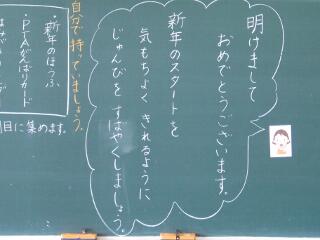 明けまして
おめでとうございます。
新年のスタートを
気もちよく きれるように
じゅんびを すばやくしましょう。
自分で 持っていましょう。
・新年のほうふ
・PTAがんばりカード
日に集めます。